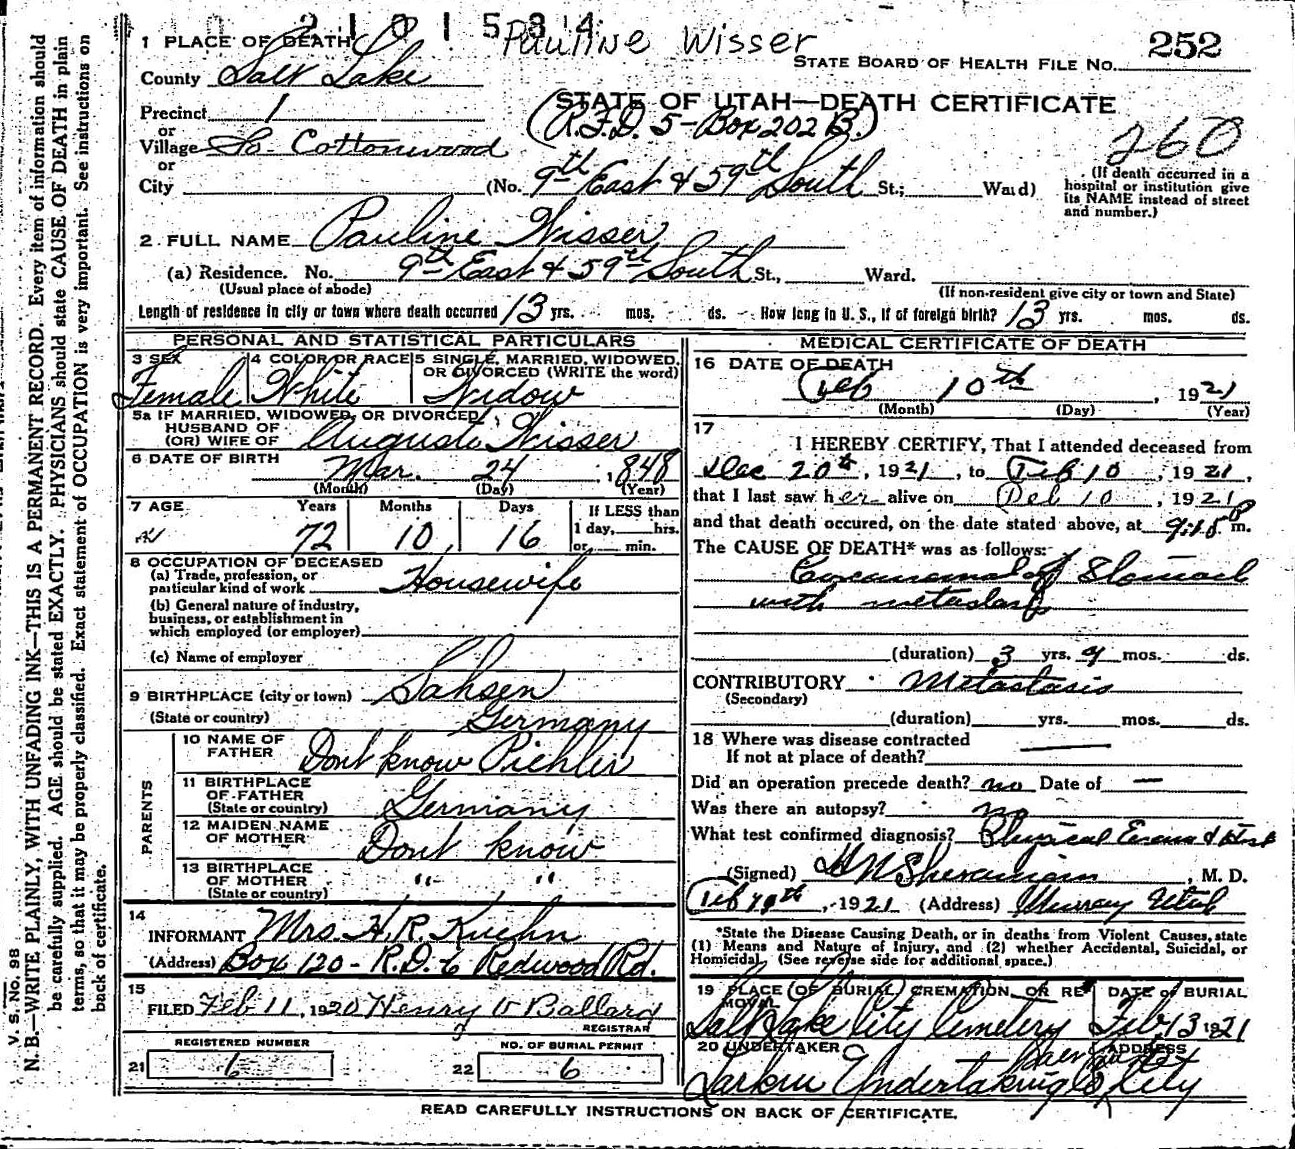 2 1 0 1 5 3 4
Pauline Wisser
252
1 PLACE OF DEATH
STATE BOARD OF HEALTH FILE No.
County Salt Lake
STATE OF UTAH—DEATH CERTIFICATE
Precinct 1
(R.F.D. 5-Box 202 B.)
260
or
Village So. Cottonwood
or
City (No. 9th East & 59th South St.; Ward)
(If death occurred in a
hospital or institution give
its NAME instead of street
and number.)
2. FULL NAME Pauline Wisser
(a) Residence. No. 9th East & 59th South St., Ward.
(Usual place of abode)
(If non-resident give city or town and State)
Length of residence in city or town where death occurred 13 yrs. mos. ds. How long in U. S., if of foreign birth? 13 yrs. mos. ds.
PERSONAL AND STATISTICAL PARTICULARS
3 SEX
Female
4 COLOR OR RACE
White
5 SINGLE, MARRIED, WIDOWED,
OR DIVORCED (WRITE the word)
Widow
5a IF MARRIED, WIDOWED, OR DIVORCED
HUSBAND OF
(OR) WIFE OF Auguste Wisser
6 DATE OF BIRTH
Mar. 24, 1848
(Month) (Day) (Year)
7 AGE Years Months Days
72 10 16
If LESS than
1 day, hrs.
or min.
8 OCCUPATION OF DECEASED
(a) Trade, profession, or
particular kind of work Housewife
(b) General nature of industry,
business, or establishment in
which employed (or employer)
(c) Name of employer
9 BIRTHPLACE (city or town) Sahsen
(State or country) Germany
PARENTS
10 NAME OF
FATHER Dont know Pichler
11 BIRTHPLACE
OF FATHER
(State or country) Germany
12 MAIDEN NAME
OF MOTHER Dont know
13 BIRTHPLACE
OF MOTHER " "
(State or country)
14
INFORMANT Mrs. H. R. Kuehn
(Address) Box 120 - R.D. 6 Redwood Rd.
15
FILED Feb 11, 1920 Henry V Ballard
REGISTRAR
REGISTERED NUMBER
21 6
NO. OF BURIAL PERMIT
22 6
MEDICAL CERTIFICATE OF DEATH
16 DATE OF DEATH
Feb 10th, 1921
(Month) (Day) (Year)
17
I HEREBY CERTIFY, That I attended deceased from
Dec 20th, 1921, to Feb 10, 1921,
that I last saw her alive on Feb 10, 1921
and that death occured, on the date stated above, at 9:15 P m.
The CAUSE OF DEATH* was as follows:
of Stomach
with metastasis
(duration) 3 yrs. 9 mos. ds.
CONTRIBUTORY Metastasis
(Secondary)
(duration) yrs. mos. ds.
18 Where was disease contracted
If not at place of death?
Did an operation precede death? no Date of —
Was there an autopsy? no
What test confirmed diagnosis? Physical Exam & Hist
(Signed) , M. D.
Feb , 1921 (Address) Murray Utah
*State the Disease Causing Death, or in deaths from Violent Causes, state
(1) Means and Nature of Injury, and (2) whether Accidental, Suicidal, or
Homicidal. (See reverse side for additional space.)
19 PLACE OF BURIAL, CREMATION, OR RE-
MOVAL
Salt Lake City Cemetery
DATE of BURIAL
Feb 13 1921
20 UNDERTAKER
Larkin Undertaking Co
ADDRESS
City
READ CAREFULLY INSTRUCTIONS ON BACK OF CERTIFICATE.
V. S. No. 98
N. B.—WRITE PLAINLY, WITH UNFADING INK—THIS IS A PERMANENT RECORD. Every item of information should
be carefully supplied. AGE should be stated EXACTLY. PHYSICIANS should state CAUSE OF DEATH in plain
terms, so that it may be properly classified. Exact statement of OCCUPATION is very important. See instructions on
back of certificate.